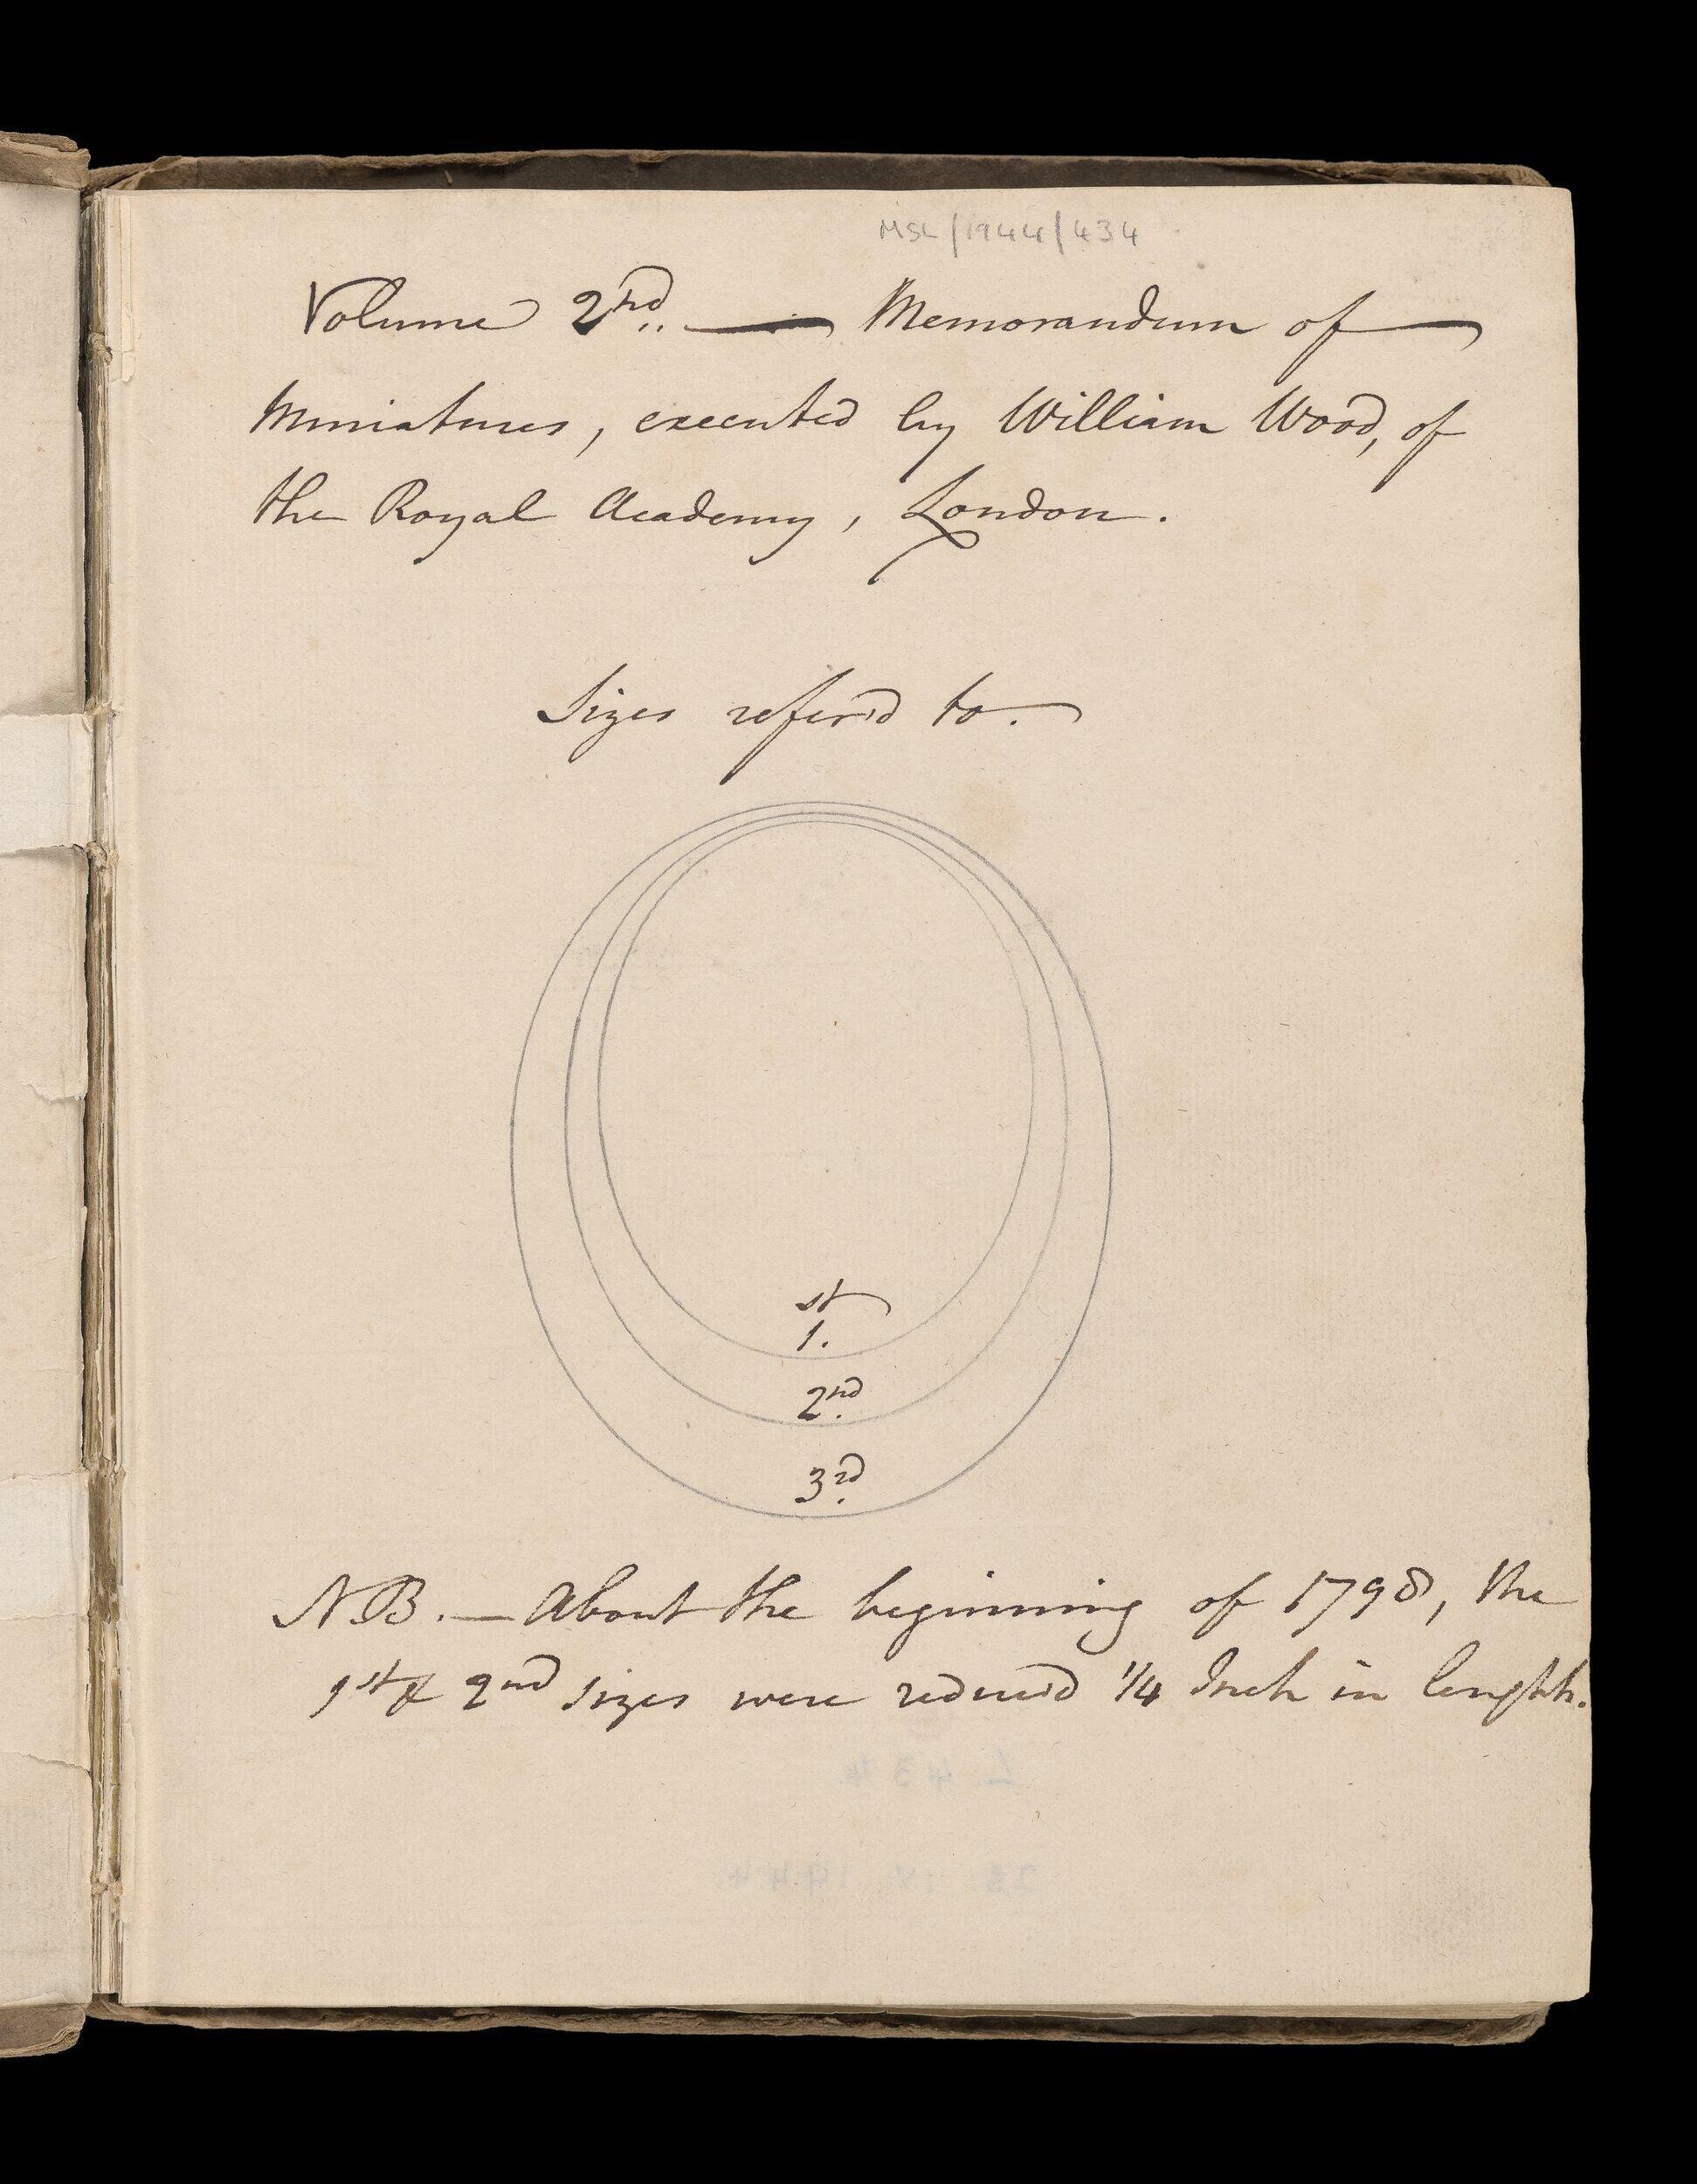 MSL/1944/434
Volume 2nd. — Memorandum of
Miniatures, executed by William Wood, of
the Royal Academy, London.
Sizes refer'd to.
1st.
2nd.
3rd.
NB. — About the beginning of 1798, the
1st & 2nd sizes were reduc'd 1/4 Inch in lenghth.
L 434